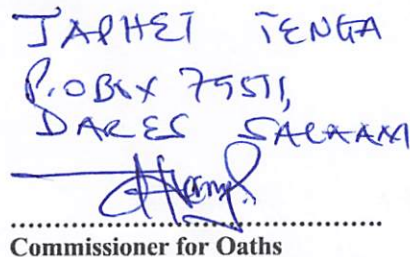 JAPHET TENGA
P.O BOX 75571,
DAR ES SALAAM
Commissioner for Oaths